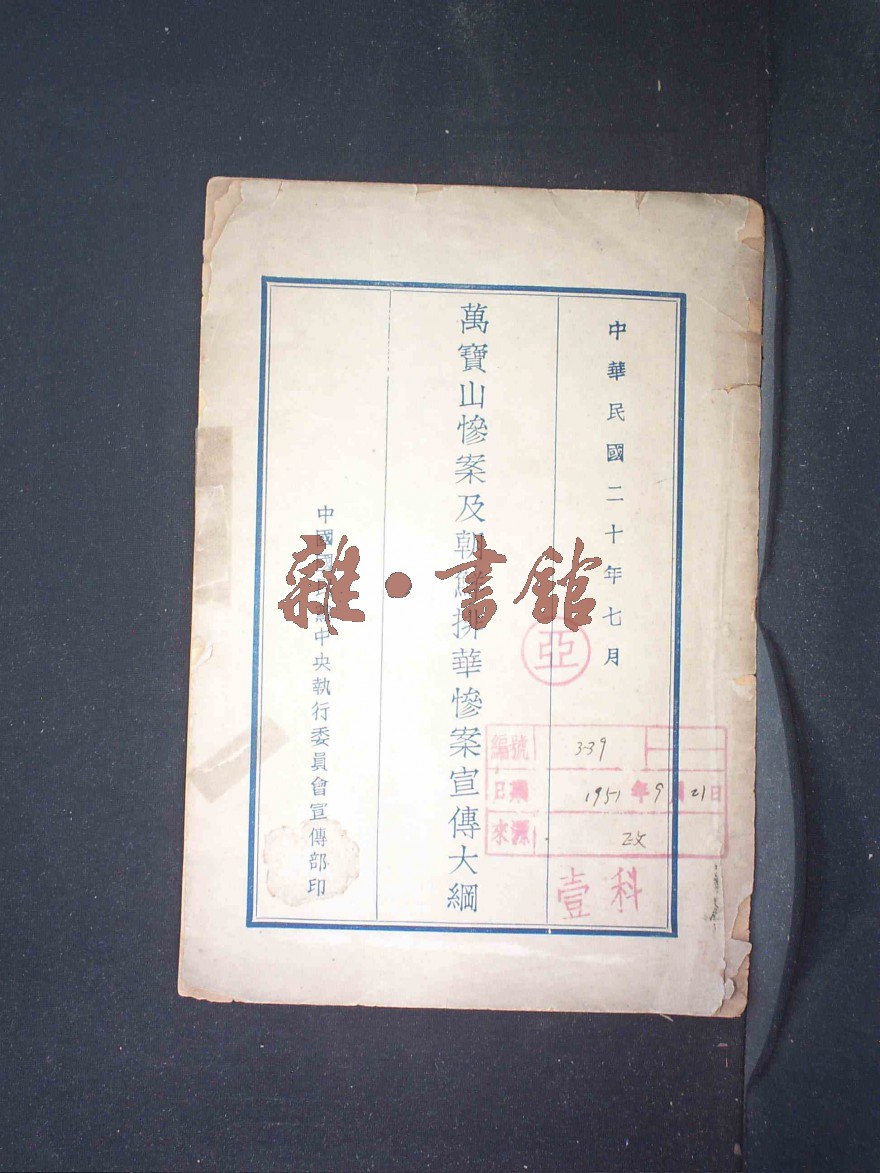 中華民國二十年七月
萬寶山慘案及朝鮮排華慘案宣傳大綱
中國國民黨中央執行委員會宣傳部印
雜·書館
亞
編號 339
日期 1951年9月21日
來源
壹科